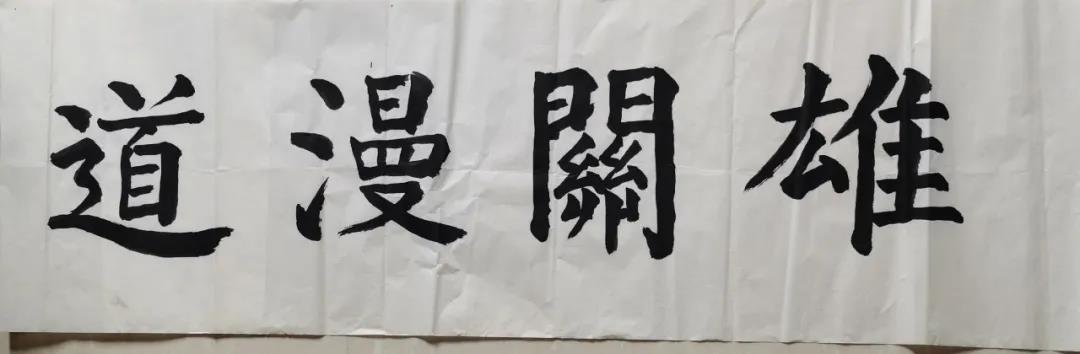 雄關漫道